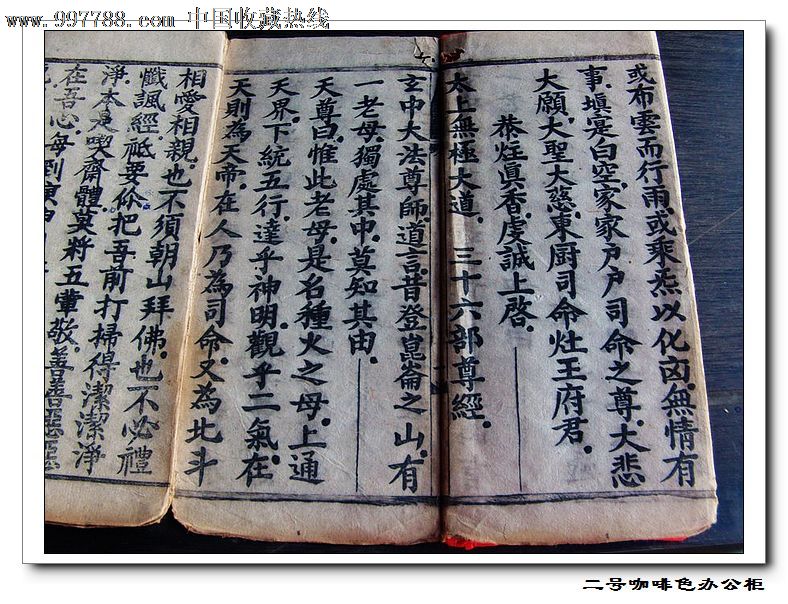 www.997788.com 中国收藏热线
或布雲而行雨.或乘炁以化囟.無情有
事.壇寔白空.家家戸戸司命之尊.大悲
大願.大聖大慈.東厨司命灶王府君.
恭炷眞香.虔誠上啓.
太上無極大道 三十六部尊經.
玄中大法尊師道言.昔登崑崙之山.有
一老母.獨處其中.莫知其由.
天尊曰.惟此老母.是名種火之母.上通
天界.下統五行.達乎神明.觀乎二氣.在
天則為天帝.在人乃為司命.又為北斗
相愛相親.也不須朝山拜佛.也不必禮
懺諷經.祗要伱把吾前打掃得潔潔淨
淨.本是喫齋體.莫將五葷敬.善善惡惡
在吾心.每到庚申
二号咖啡色办公柜